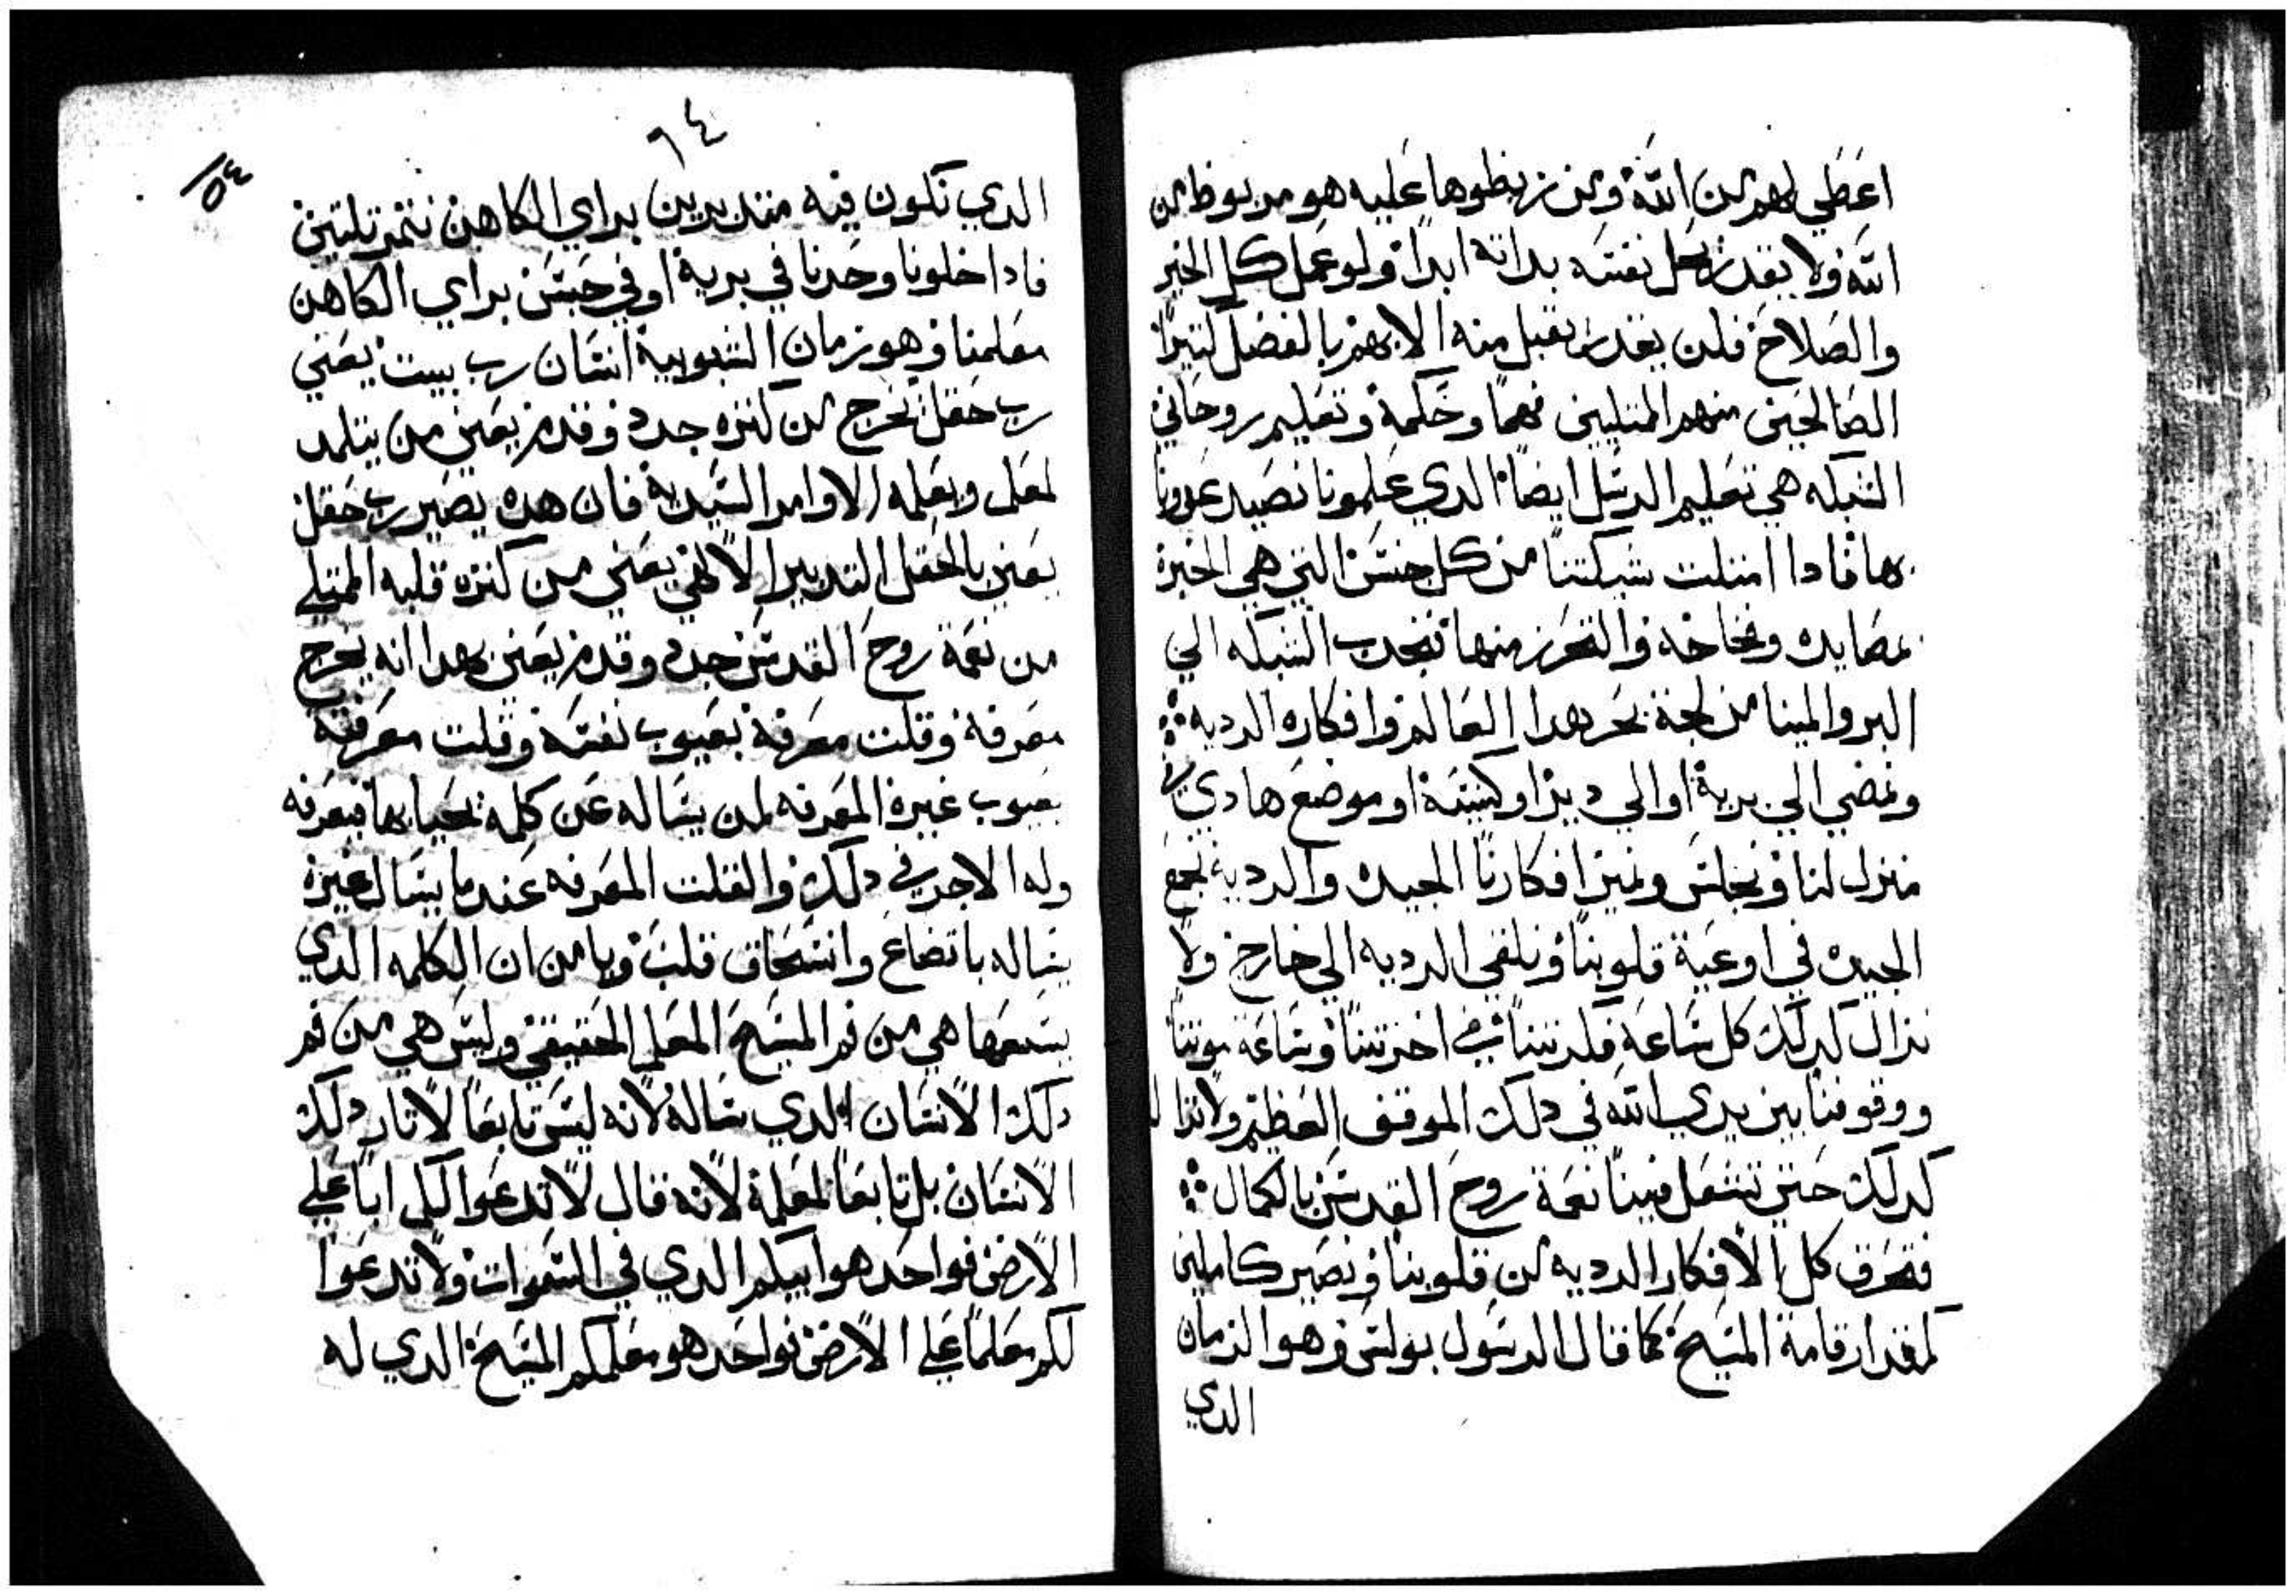 اعطي لهم من الله ومن ربطوها عليه هو مربوط من
الله ولا يقدر يحل نفسه بداته ابدا ولو عمل كل الخير
والصلاح فلن يقدر يقبل منه الا بهم بالفضل
الصالحين منهم الممتليين فهما وحكمة وتعليم روحاني
الشبكه هي تعليم الرسل ايضا الدي علمونا نصيد
بها فادا امتلت شبكتنا من كل جنس التي هي الخبرة
بمصايده وفخاخه والتحرز منها فنجدب الشبكه الي
البر والمينا من لجة بحر هدا العالم وافكاره الرديه
ونمضي الي برية او الي دير او كنيسة او موضع هادي
منزل لنا ونجلس ونميز افكارنا الجيده والرديه نجمع
الجيده في اوعية قلوبنا ونلقي الرديه الي خارج ولا
نزال كدلك كل ساعة فكرتنا في اخرتنا وساعة موتنا
ووقوفنا بين يدي الله في دلك الموقف العظيم ولا نزال
كدلك حتي تشتعل فينا نعمة روح القدس بالكمال
فتحرق كل الافكار الرديه من قلوبنا ونصير كاملين
كمقدار قامة المسيح كما قال الرسول بولس وهو الزمان
الدي
٦٤
٥٤
الدي نكون فيه متدبرين براي الكاهن نتمر تلتين
فادا خلونا وحدنا في برية او في حبس براي الكاهن
معلمنا وهو زمان الشبوبية انسان رب بيت يعني
رب حقل نخرج من كنزه جدد وقدم يعني من يتلمد
لمعلم ويعلمه الاوامر السيدية فان هده يصير رب حقل
يعني بالحقل التدبير الالهي يعني من كنزه قلبه الممتلي
من نعمة روح القدس جدد وقدم يعني بهدا انه يخرج
معرفة وقلت معرفة بعيوب نفسه وقلت معرفته
بعيوب غيره المعرفه لمن يساله عن كلمة تحيا بها فيعرفه
وله الاجر في دلك والقلت المعرفه عندما يسال غيره
يساله باتضاع وانسحاق قلب ويامن ان الكلمه الدي
يسمعها هي من فم المسيح المعلم الحقيقي وليس هي من فم
دلك الانسان الدي ساله لانه ليس تابعا لاتار دلك
الانسان بل تابعا لمعلمه لانه قال لا تدعوا لكم ابا علي
الارض فواحد هو ابيكم الدي في السموات ولا تدعوا
لكم معلما علي الارض فواحد هو معلمكم المسيح الدي له